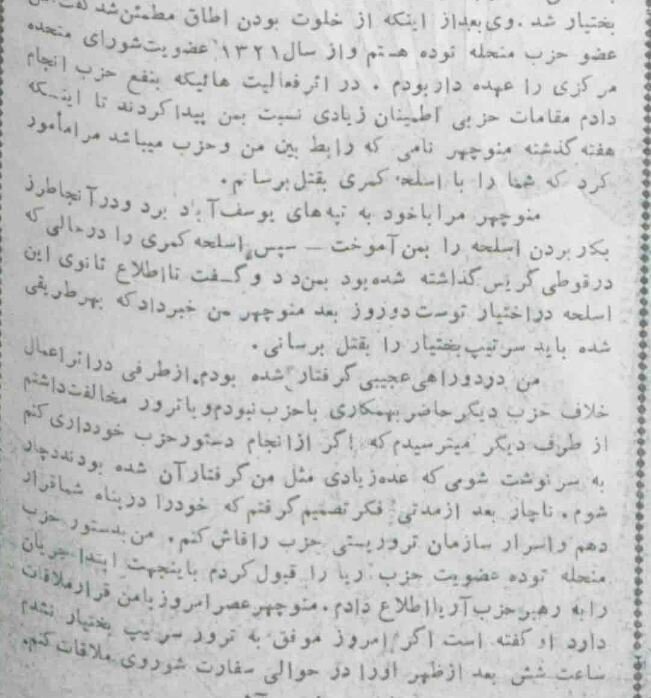 بختیار شد. وی بعداز اینکه از خلوت بودن اطاق مطمئن شد گفت من
عضو حزب منحله توده هستم واز سال ۱۳۲۱ عضویت شورای متحده
مرکزی را عهده دار بودم . در اثر فعالیت هائیکه بنفع حزب انجام
دادم مقامات حزبی اطمینان زیادی نسبت بمن پیدا کردند تا اینکه
هفته گذشته منوچهر نامی که رابط بین من وحزب میباشد مرامأمور
کرد که شما را با اسلحه کمری بقتل برسانم .
منوچهر مرا باخود به تپه‌های یوسف آباد برد ودر آنجاطرز
بکار بردن اسلحه را بمن آموخت — سپس اسلحه کمری را درحالی که
درقوطی گریس گذاشته شده بود بمن داد و گفت تااطلاع ثانوی این
اسلحه دراختیار توست دوروز بعد منوچهر بمن خبرداد که بهرطریقی
شده باید سرتیپ بختیار را بقتل برسانی .
من دردوراهی عجیبی گرفتار شده بودم. ازطرفی دراثر اعمال
خلاف حزب دیگر حاضر بهمکاری باحزب نبودم و باترور مخالفت داشتم
از طرف دیگر میترسیدم که اگر ازانجام دستور حزب خودداری کنم
به سرنوشت شومی که عده‌زیادی مثل من گرفتار آن شده بودند دچار
شوم. ناچار بعد ازمدتی فکر تصمیم گرفتم که خودرا درپناه شما قرار
دهم واسرار سازمان تروریستی حزب رافاش کنم . من بدستور حزب
منحله توده عضویت حزب آریا را قبول کردم باینجهت ابتدا جریان
رابه رهبر حزب آریا اطلاع دادم . منوچهر عصر امروز بامن قرارملاقات
دارد او گفته است اگر امروز موفق به ترور سرتیپ بختیار نشدم
ساعت شش بعد ازظهر اورا در حوالی سفارت شوروی ملاقات کنم.